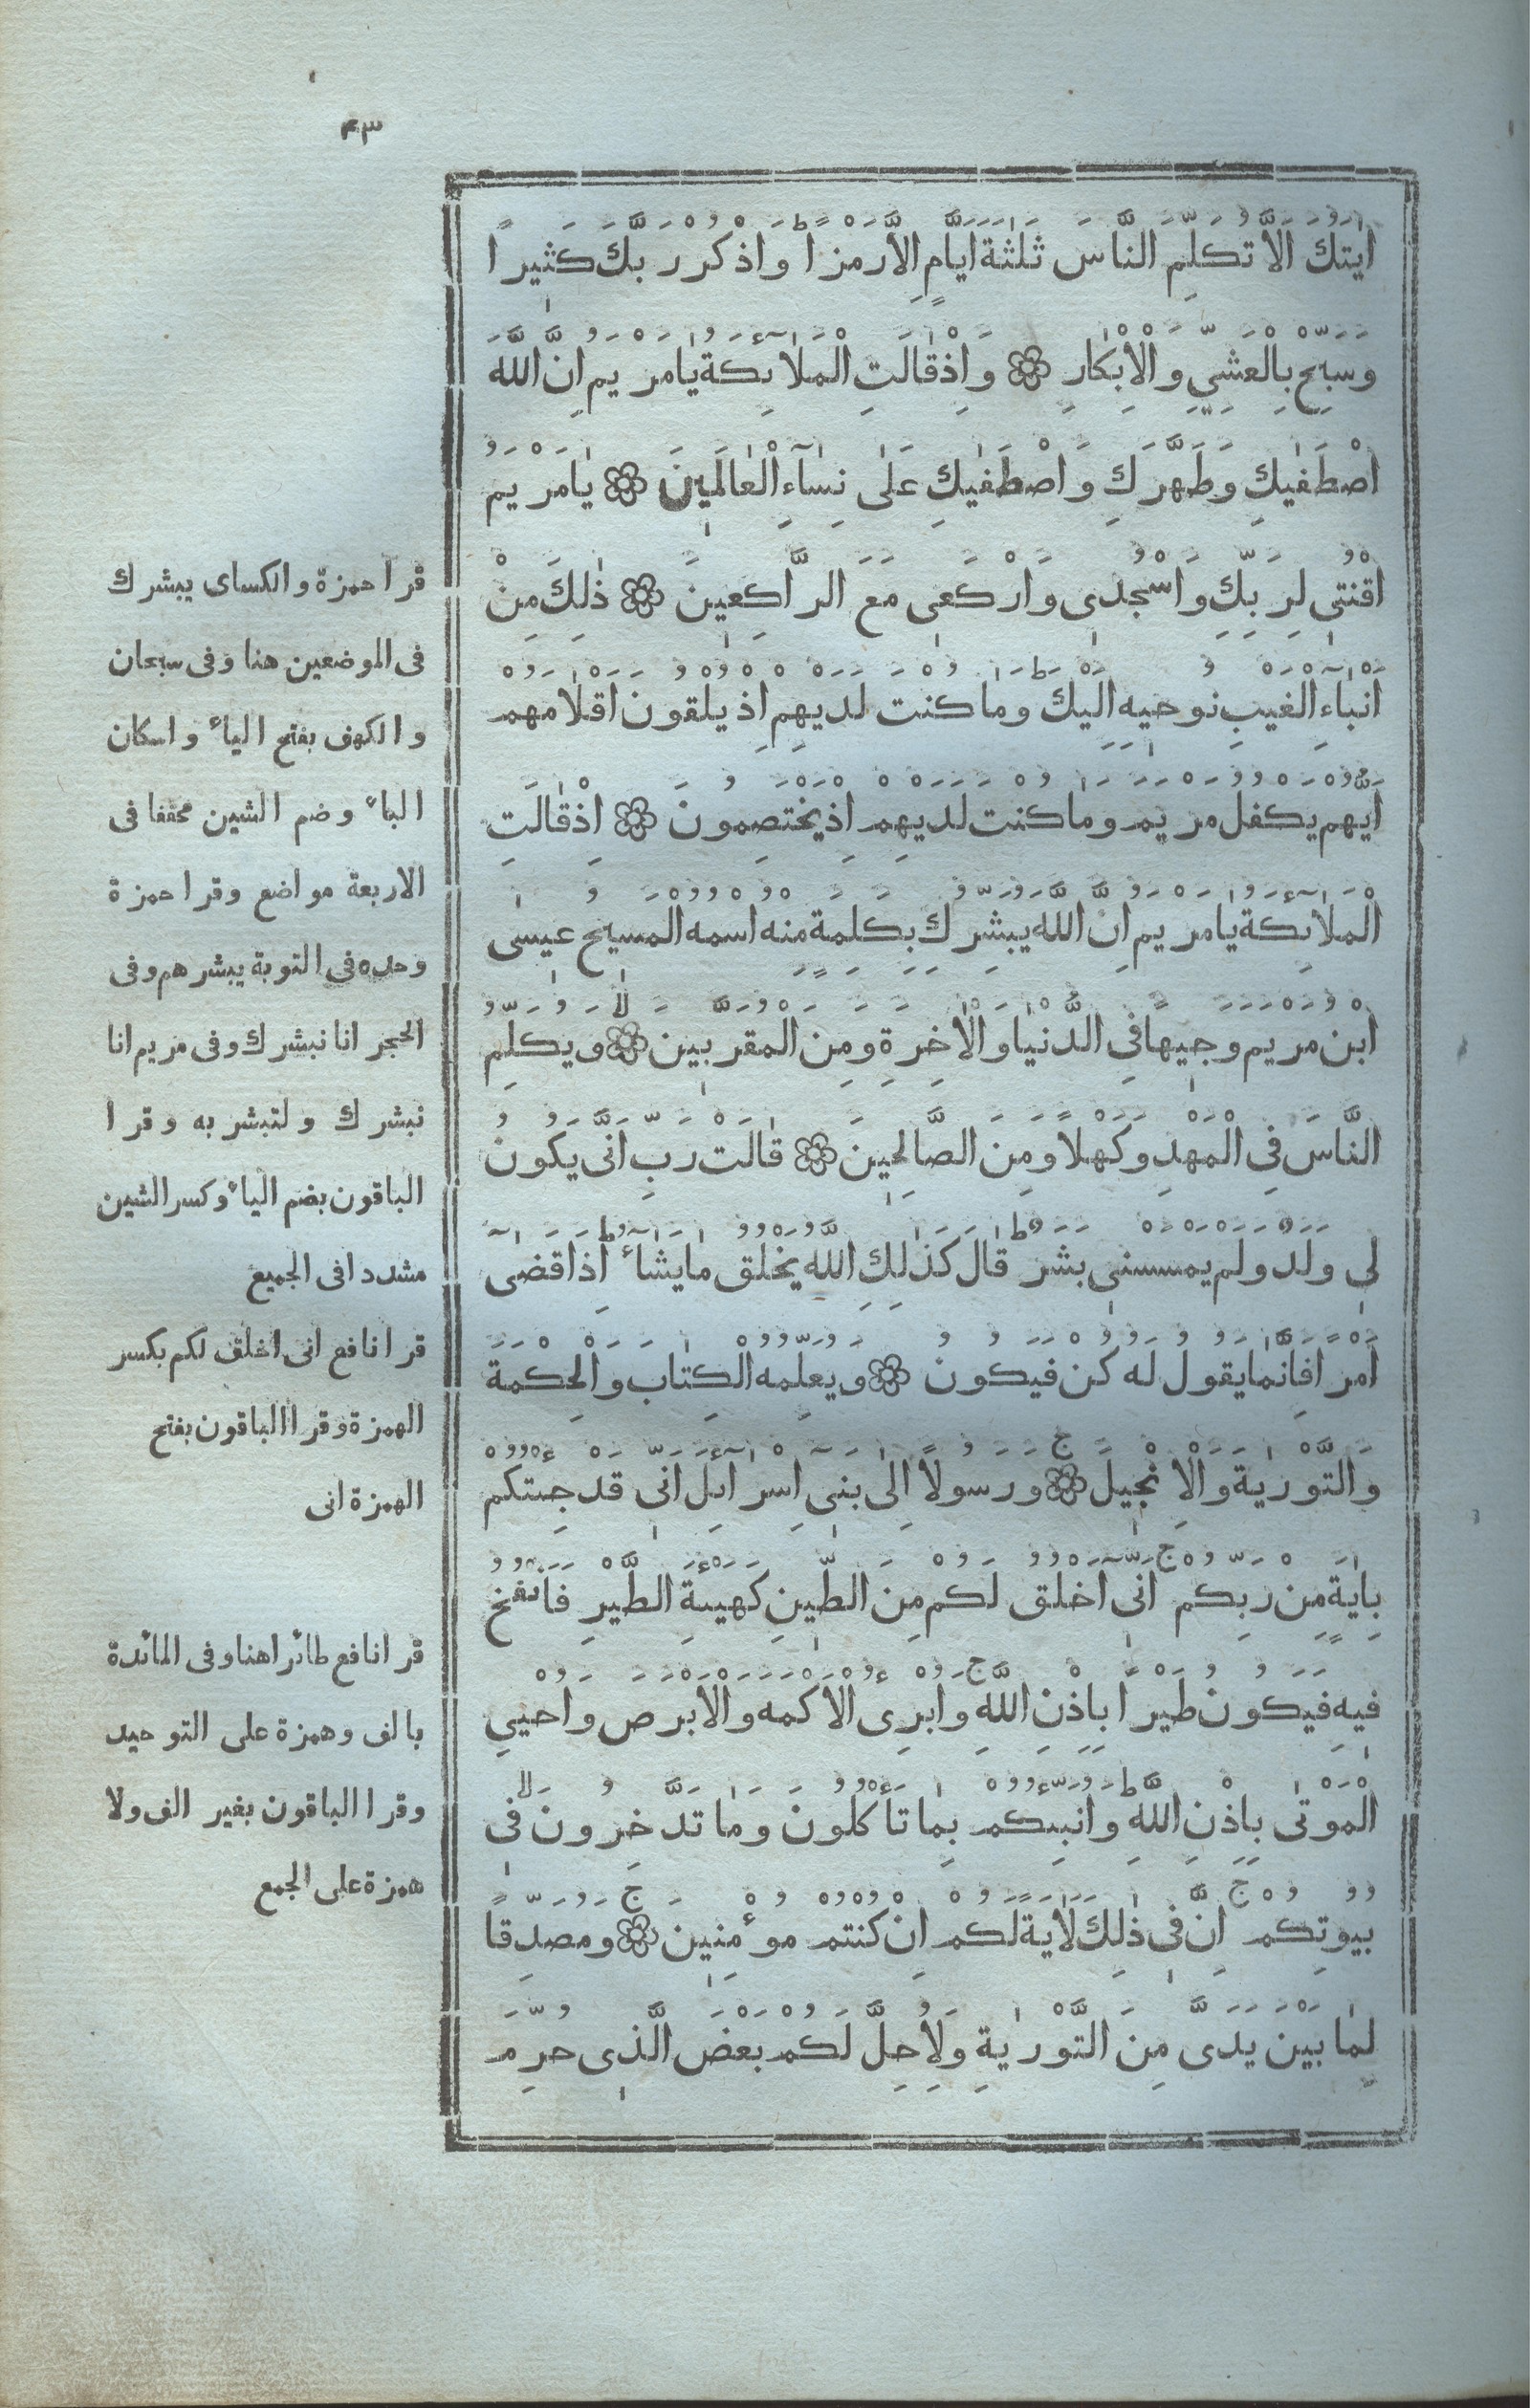 ٤٣
اٰيَتُكَ اَلَّا تُكَلِّمَ النَّاسَ ثَلٰثَةَ اَيَّامٍ اِلَّا رَمْزًا ط وَاذْكُرْ رَبَّكَ كَثٖيرًا
وَسَبِّحْ بِالْعَشِيِّ وَالْاِبْكٰارِ ۞ وَاِذْ قٰالَتِ الْمَلٰٓائِكَةُ يٰامَرْيَمُ اِنَّ اللّٰهَ
اصْطَفٰيكِ وَطَهَّرَكِ وَاصْطَفٰيكِ عَلٰى نِسٰٓاءِ الْعٰالَمٖينَ ۞ يٰامَرْيَمُ
اقْنُتٖى لِرَبِّكِ وَاسْجُدٖى وَارْكَعٖى مَعَ الرَّاكِعٖينَ ۞ ذٰلِكَ مِنْ
اَنْبٰٓاءِ الْغَيْبِ نُوحٖيهِ اِلَيْكَ ط وَمٰا كُنْتَ لَدَيْهِمْ اِذْ يُلْقُونَ اَقْلٰامَهُمْ
اَيُّهُمْ يَكْفُلُ مَرْيَمَ وَمٰا كُنْتَ لَدَيْهِمْ اِذْ يَخْتَصِمُونَ ۞ اِذْ قٰالَتِ
الْمَلٰٓائِكَةُ يٰامَرْيَمُ اِنَّ اللّٰهَ يُبَشِّرُكِ بِكَلِمَةٍ مِنْهُ اسْمُهُ الْمَسٖيحُ عٖيسٰى
ابْنُ مَرْيَمَ وَجٖيهًا فِى الدُّنْيٰا وَالْاٰخِرَةِ وَمِنَ الْمُقَرَّبٖينَ لا ۞ وَيُكَلِّمُ
النَّاسَ فِى الْمَهْدِ وَكَهْلًا وَمِنَ الصَّالِحٖينَ ۞ قٰالَتْ رَبِّ اَنّٰى يَكُونُ
لٖى وَلَدٌ وَلَمْ يَمْسَسْنٖى بَشَرٌ ط قٰالَ كَذٰلِكِ اللّٰهُ يَخْلُقُ مٰا يَشٰٓاءُ ط اِذٰا قَضٰٓى
اَمْرًا فَاِنَّمٰا يَقُولُ لَهُ كُنْ فَيَكُونُ ۞ وَيُعَلِّمُهُ الْكِتٰابَ وَالْحِكْمَةَ
وَالتَّوْرٰيةَ وَالْاِنْجٖيلَ ج ۞ وَرَسُولًا اِلٰى بَنٖٓى اِسْرٰٓائِلَ اَنّٖى قَدْ جِئْتُكُمْ
بِاٰيَةٍ مِنْ رَبِّكُمْ ج اَنّٖٓى اَخْلُقُ لَكُمْ مِنَ الطّٖينِ كَهَيْئَةِ الطَّيْرِ فَاَنْفُخُ
فٖيهِ فَيَكُونُ طَيْرًا بِاِذْنِ اللّٰهِ ج وَاُبْرِئُ الْاَكْمَهَ وَالْاَبْرَصَ وَاُحْيِي
الْمَوْتٰى بِاِذْنِ اللّٰهِ ط وَاُنَبِّئُكُمْ بِمٰا تَأْكُلُونَ وَمٰا تَدَّخِرُونَ لا فٖى
بُيُوتِكُمْ ج اِنَّ فٖى ذٰلِكَ لَاٰيَةً لَكُمْ اِنْ كُنْتُمْ مُؤْمِنٖينَ ج ۞ وَمُصَدِّقًا
لِمٰا بَيْنَ يَدَىَّ مِنَ التَّوْرٰيةِ وَلِاُحِلَّ لَكُمْ بَعْضَ الَّذٖى حُرِّمَ
قرا حمزة والكساى يبشرك
فى الموضعين هنا وفى سبحان
والكهف بفتح الياء واسكان
الباء وضم الشين مخففا فى
الاربعة مواضع وقرا حمزة
وحده فى التوبة يبشرهم وفى
الحجر انا نبشرك وفى مريم انا
نبشرك ولتبشر به وقرا
الباقون بضم الياء وكسر الشين
مشددا فى الجميع
قرا نافع انى اخلق لكم بكسر
الهمزة وقرا الباقون بفتح
الهمزة انى
قرا نافع طائرا هنا وفى المائدة
بالف وهمزة على التوحيد
وقرا الباقون بغير الف ولا
همزة على الجمع